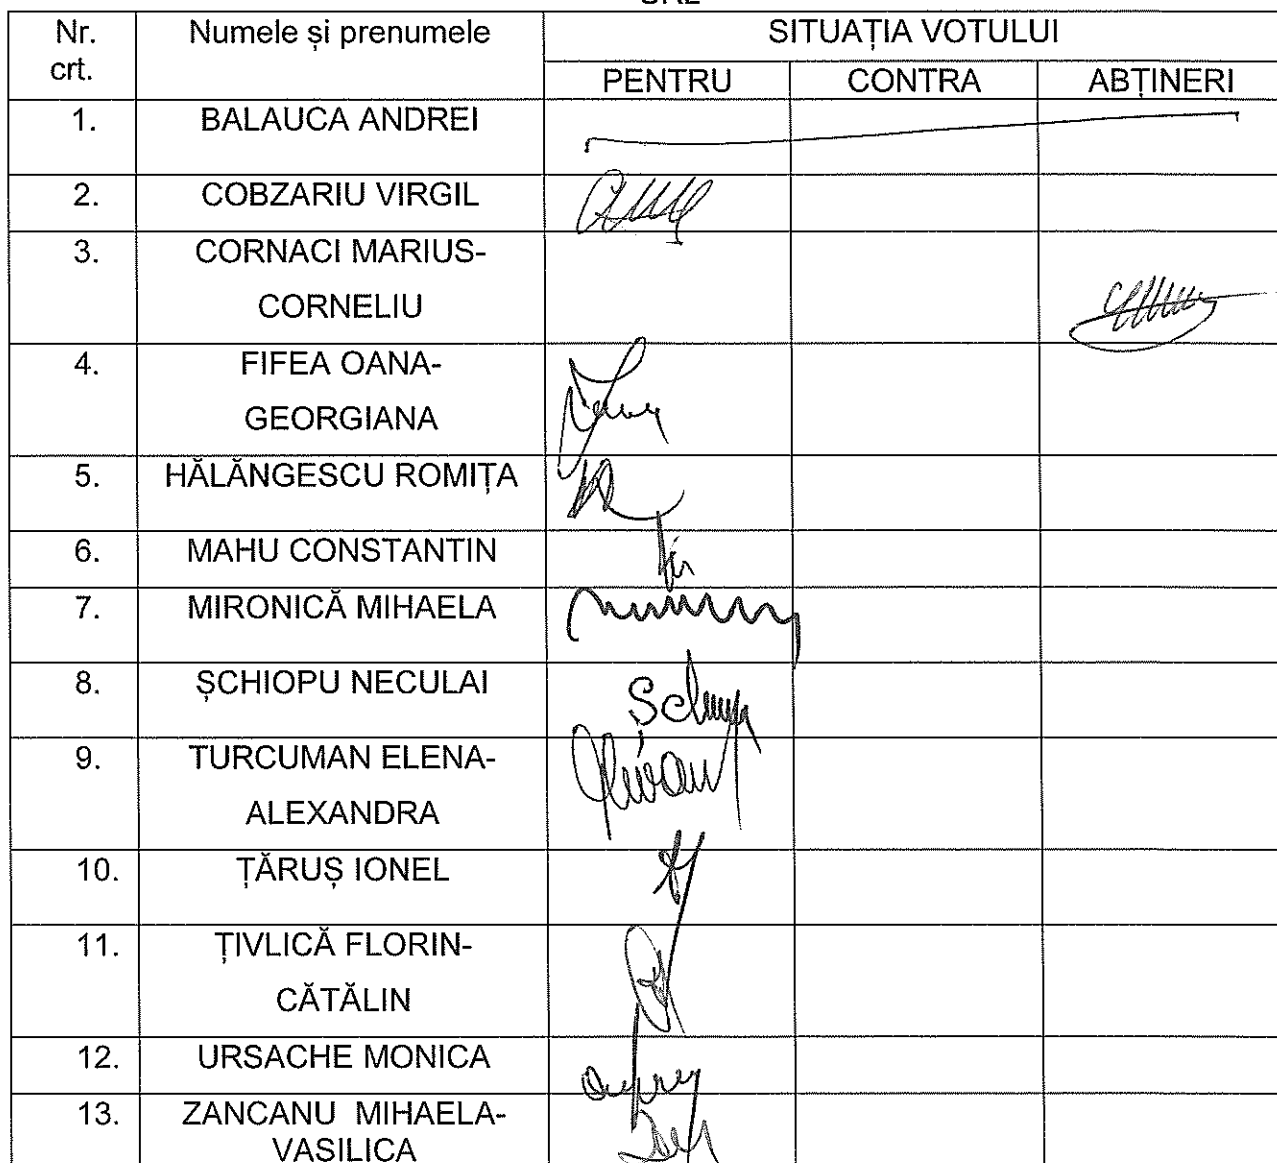 SRL
Nr. crt. Numele și prenumele SITUAȚIA VOTULUI
PENTRU CONTRA ABȚINERI
1. BALAUCA ANDREI
2. COBZARIU VIRGIL
3. CORNACI MARIUS-
CORNELIU
4. FIFEA OANA-
GEORGIANA
5. HĂLĂNGESCU ROMIȚA
6. MAHU CONSTANTIN
7. MIRONICĂ MIHAELA
8. ȘCHIOPU NECULAI
9. TURCUMAN ELENA-
ALEXANDRA
10. ȚĂRUȘ IONEL
11. ȚIVLICĂ FLORIN-
CĂTĂLIN
12. URSACHE MONICA
13. ZANCANU MIHAELA-
VASILICA